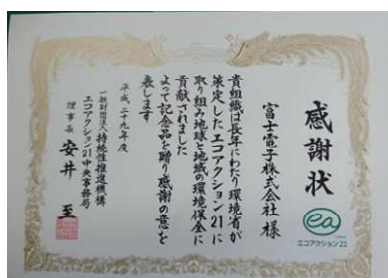 感謝状
ea
エコアクション21
富士電子株式会社 様
貴組織は長年にわたり環境省が
策定したエコアクション21に
取り組み地球と地域の環境保全に
貢献されました
よって記念品を贈り感謝の意を
表します
平成二十九年度
一般財団法人持続性推進機構
エコアクション21中央事務局
理事長 安井 至